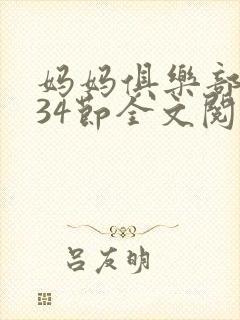 妈妈俱樂部
34節全文閱
吕友明